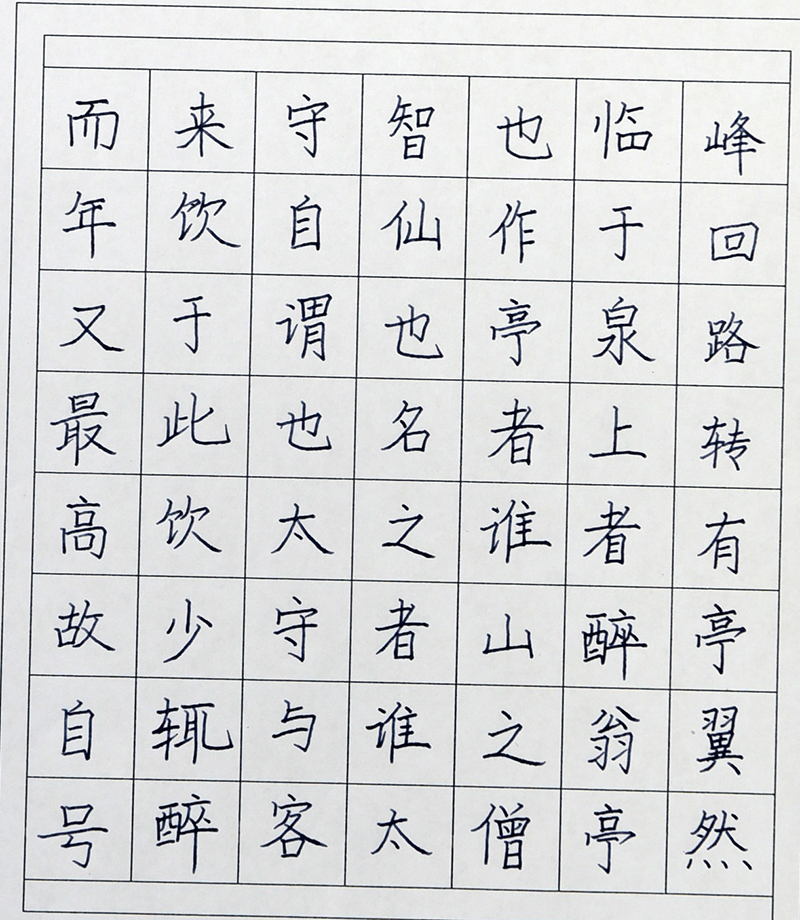 峰回路转有亭翼然
临于泉上者醉翁亭
也作亭者谁山之僧
智仙也名之者谁太
守自谓也太守与客
来饮于此饮少辄醉
而年又最高故自号